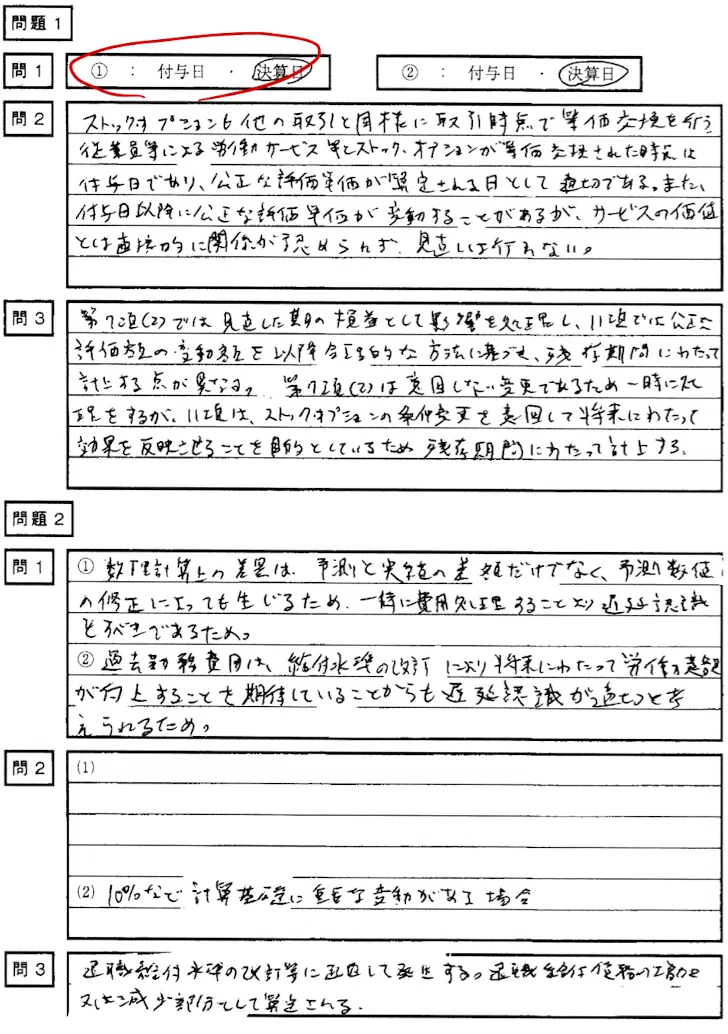 問題1
問1 ① : 付与日 ・ 決算日 ② : 付与日 ・ 決算日
問2 ストックオプションも他の取引と同様に取引時点で等価交換を行う
従業員等による労働サービス等とストック、オプションが等価交換された時点は
付与日であり、公正な評価単価が算定される日として適切である。また、
付与日以降に公正な評価単価が変動することがあるが、サービスの価値
とは直接的に関係が認められず、見直しは行わない。
問3 第7項(2)では見直した期の損益として影響を処理し、11項では公正な
評価額の変動額を以降合理的な方法に基づき、残存期間にわたって
計上する点が異なる。第7項(2)は意図しない変更であるため一時に処
理をするが、11項は、ストックオプションの条件変更を意図して将来にわたって
効果を反映させることを目的としているため残存期間にわたって計上する.
問題2
問1 ① 数理計算上の差異は、予測と実績の差額だけでなく、予測数値
の修正によっても生じるため、一時に費用処理することより遅延認識
とすべきであるため。
② 過去勤務費用は、給付水準の改訂により将来にわたって労働意欲
が向上することを期待していることからも遅延認識が適切と考
えられるため。
問2 (1)
(2) 10%などで計算基礎に重要な変動がある場合
問3 退職給付水準の改訂等に起因して発生する。退職給付債務の増加
又は減少部分として算定される.